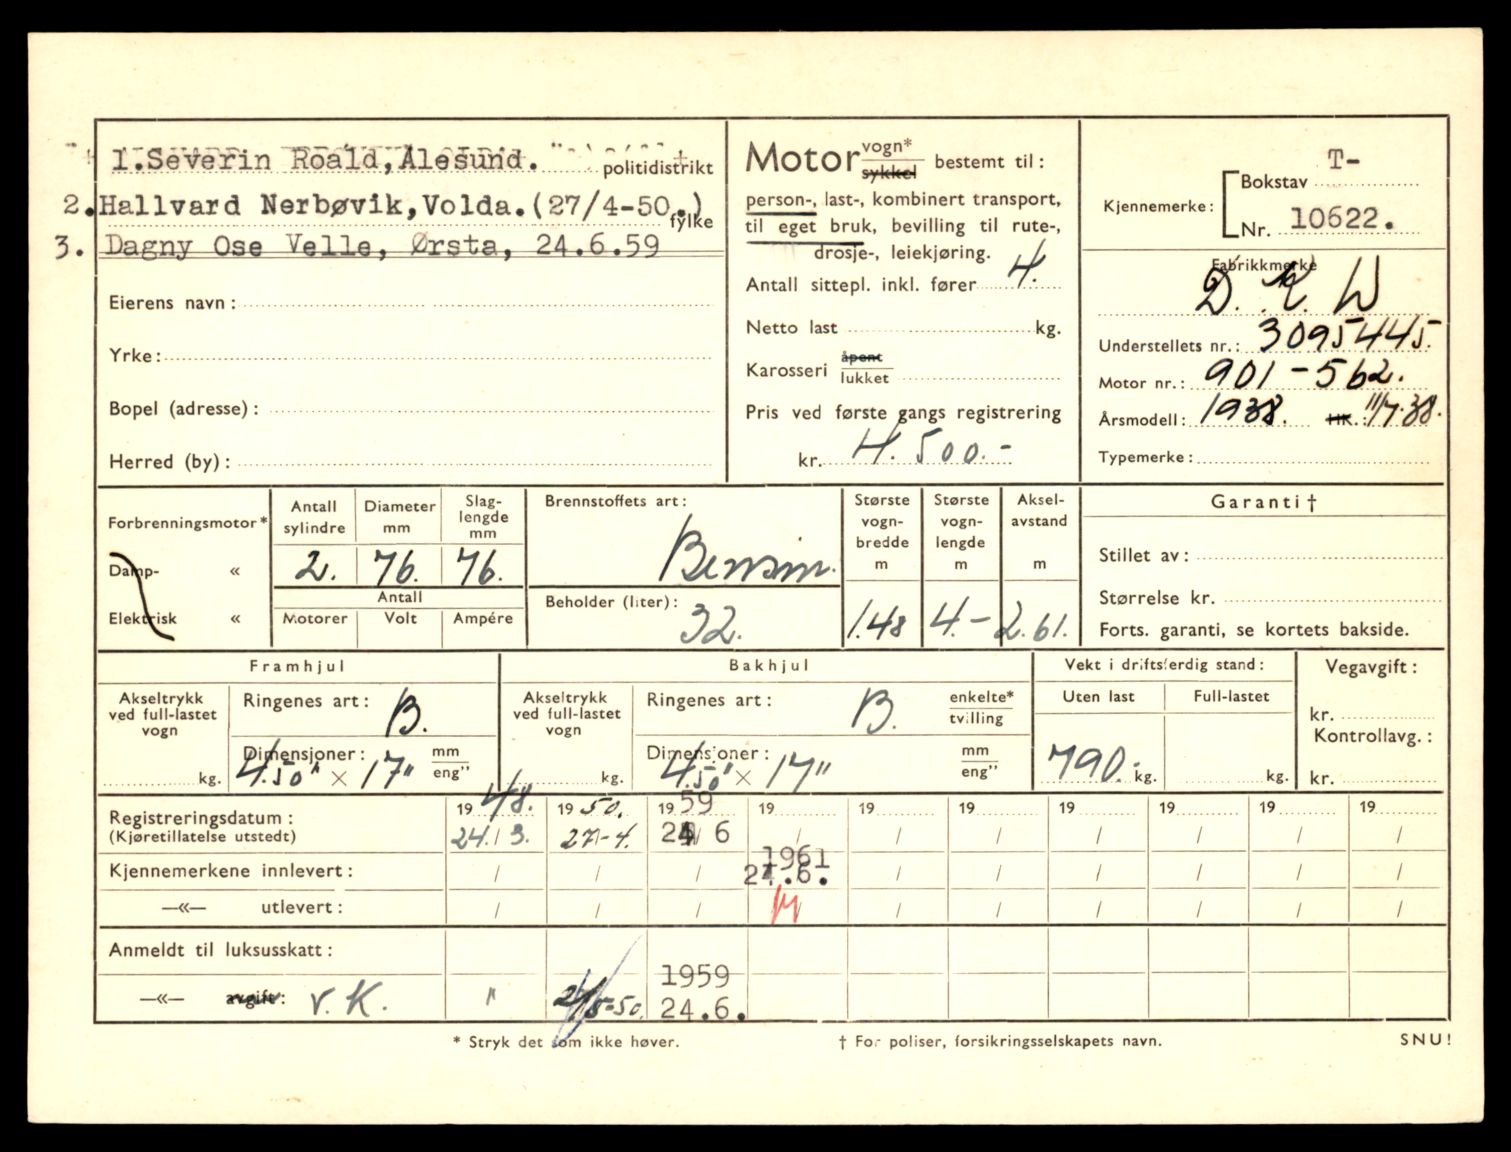 1.Severin Roald,Ålesund. politidistrikt
2.Hallvard Nerbøvik,Volda.(27/4-50.) fylke
3. Dagny Ose Velle, Ørsta, 24.6.59
Eierens navn:
Yrke:
Bopel (adresse):
Herred (by):
Motor vogn* sykkel bestemt til:
person-, last-, kombinert transport,
til eget bruk, bevilling til rute-,
drosje-, leiekjøring.
Antall sittepl. inkl. fører 4.
Netto last kg.
Karosseri åpent lukket
Pris ved første gangs registrering
kr. 4.500.-
Kjennemerke: Bokstav T-
Nr. 10622.
Fabrikkmerke
D. K. W
Understellets nr.: 3095445.
Motor nr.: 901-562.
Årsmodell: 1938. HK.: 11/7.38.
Typemerke:
Forbrenningsmotor*
Damp- «
Elektrisk «
Antall sylindre Diameter mm Slaglengde mm
2. 76. 76.
Antall
Motorer Volt Ampére
Brennstoffets art:
Bensin.
Beholder (liter):
32.
Største vognbredde m Største vognlengde m Akselavstand m
1.48 4.- 2.61.
Garanti †
Stillet av:
Størrelse kr.
Forts. garanti, se kortets bakside.
Framhjul
Akseltrykk ved full-lastet vogn
kg.
Ringenes art: B.
Dimensjoner: mm eng”
4.50" × 17"
Bakhjul
Akseltrykk ved full-lastet vogn
kg.
Ringenes art: B. enkelte* tvilling
Dimensjoner: mm eng”
4.50" × 17"
Vekt i driftsferdig stand:
Uten last Full-lastet
790.- kg. kg.
Vegavgift:
kr.
Kontrollavg.:
kr.
Registreringsdatum: 1948. 1950. 1959 19 19 19 19 19 19 19
(Kjøretillatelse utstedt) 24./3. 27/-4. 24/6 / / / / / / /
1961
Kjennemerkene innlevert: / / / 24.6. / / / / / /
—«— utlevert: / / / / / / / / /
Anmeldt til luksusskatt:
1959
—«— avgift: v.K. " 27/5-50. 24.6.
* Stryk det som ikke høver.
† For poliser, forsikringsselskapets navn.
SNU!